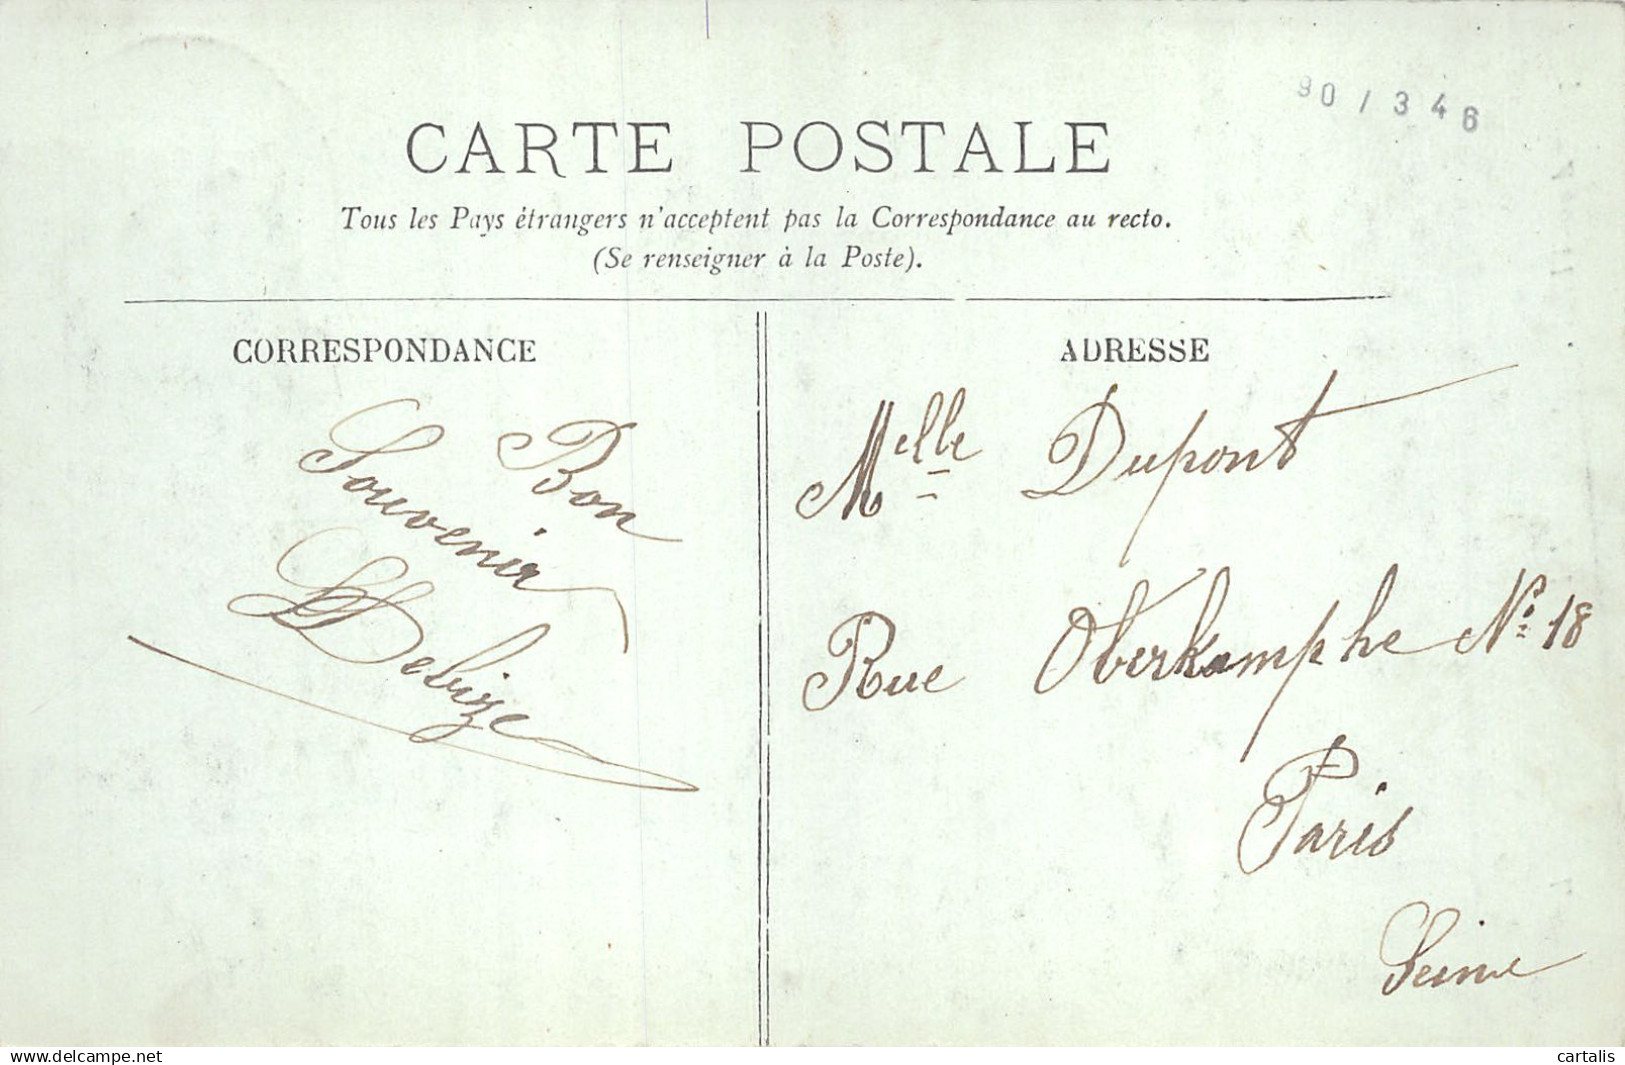 90 / 346
CARTE POSTALE
Tous les Pays étrangers n'acceptent pas la Correspondance au recto.
(Se renseigner à la Poste).
CORRESPONDANCE
Bon
Souvenir
Debize
ADRESSE
Melle Dupont
Rue Oberkamphe No 18
Paris
Seine
www.delcampe.net
cartalis